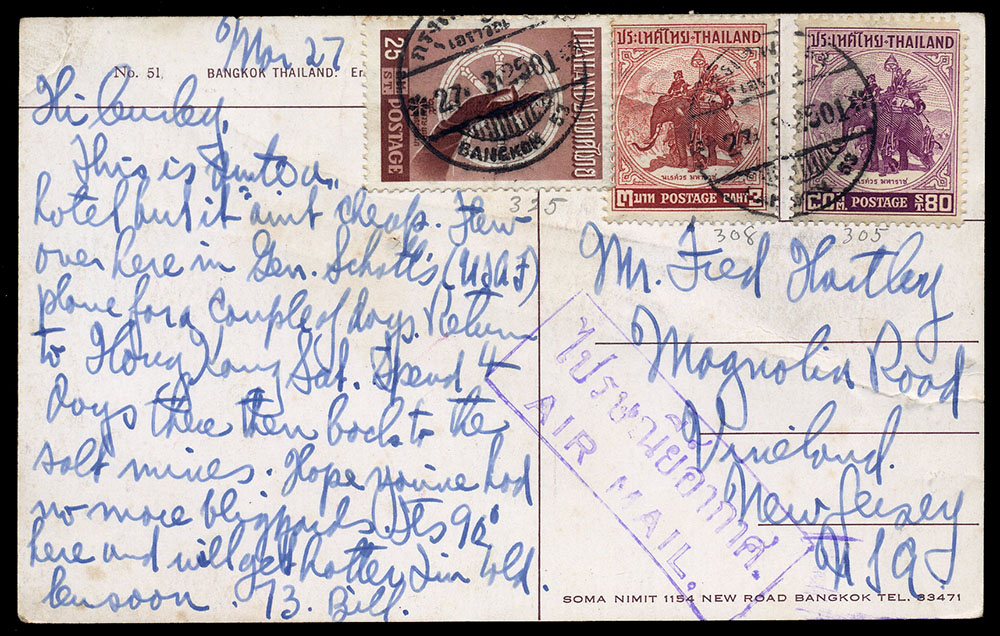 Mar 27
No. 51, BANGKOK THAILAND:
Hi
This is a
hotel but it "aint" cheap. Flew
over here in Gen. Schott's (USAF)
plane for a couple of days. Return
to Hong Kong Sat. Spend 4
Days there then back to the
salt mines. Hope you've had
no more blizzards. Its 90°
here and will get hotter, I'm told.
soon. 73. Bill.
25 ST. POSTAGE
THAILAND ประเทศไทย
27. 3. 2501
BANGKOK
ประเทศไทย-THAILAND
นเรศวร มหาราช
๓ บาท POSTAGE BAHT 3
ประเทศไทย-THAILAND
นเรศวร มหาราช
๘๐ ส. POSTAGE ST. 80
325
308
305
Mr. Fred Hartley
Magnolia Road
Vineland.
New Jersey
USA
ไปรษณีย์อากาศ.
AIR MAIL.
SOMA NIMIT 1154 NEW ROAD BANGKOK TEL. 33471